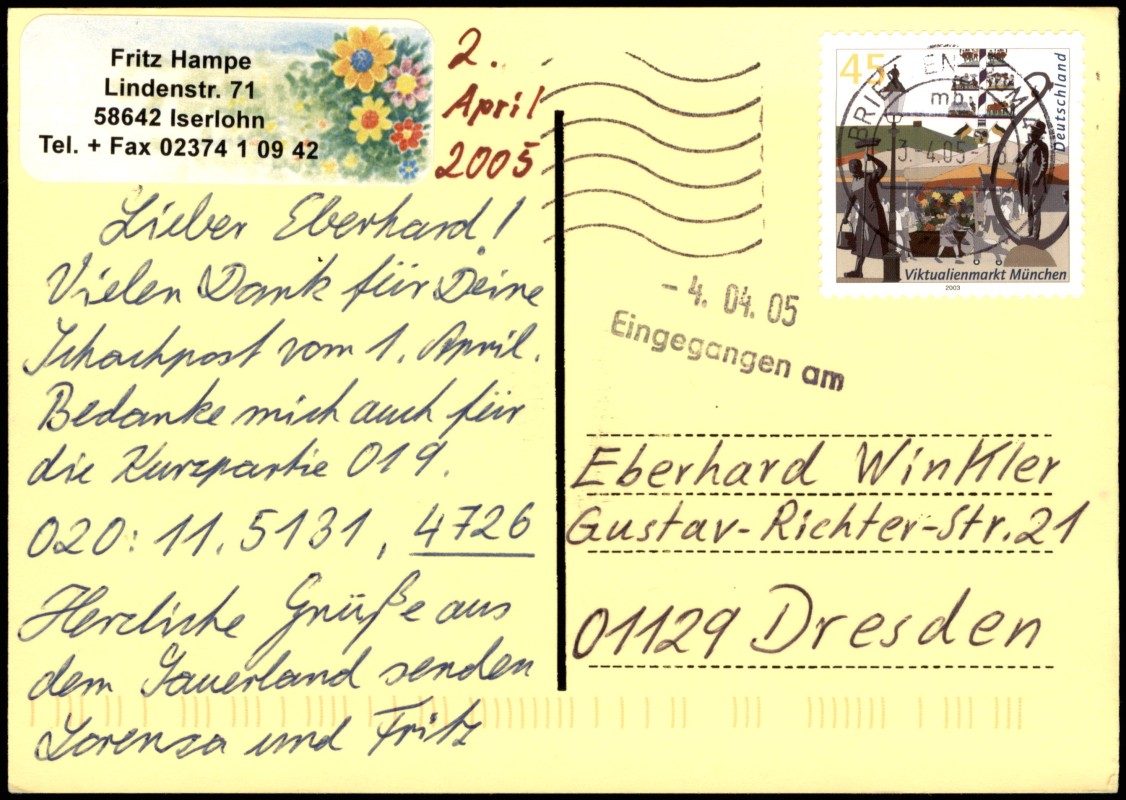 Fritz Hampe
Lindenstr. 71
58642 Iserlohn
Tel. + Fax 02374 1 09 42
2.
April
2005
Lieber Eberhard!
Vielen Dank für Deine
Schachpost vom 1. April.
Bedanke mich auch für
die Kurzpartie 019.
020: 11. 5131, 4726
Herzliche Grüße aus
dem Sauerland senden
Lorenza und Fritz
45
Deutschland
BRIEFZENTRUM
mb
3.4.05
Viktualienmarkt München
2003
- 4. 04. 05
Eingegangen am
Eberhard Winkler
Gustav-Richter-Str. 21
01129 Dresden